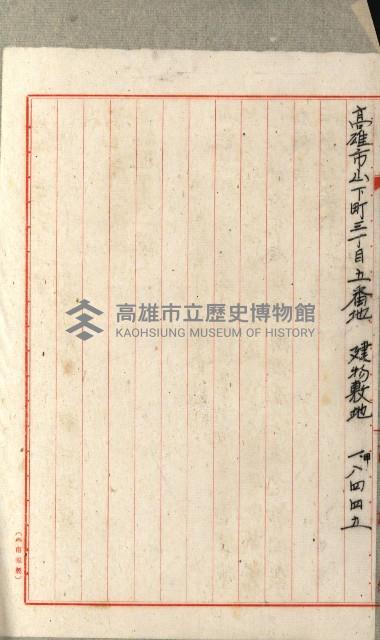 高雄市山下町三丁目五番地　建物敷地　一甲八四四五
高雄市立歷史博物館
KAOHSIUNG MUSEUM OF HISTORY